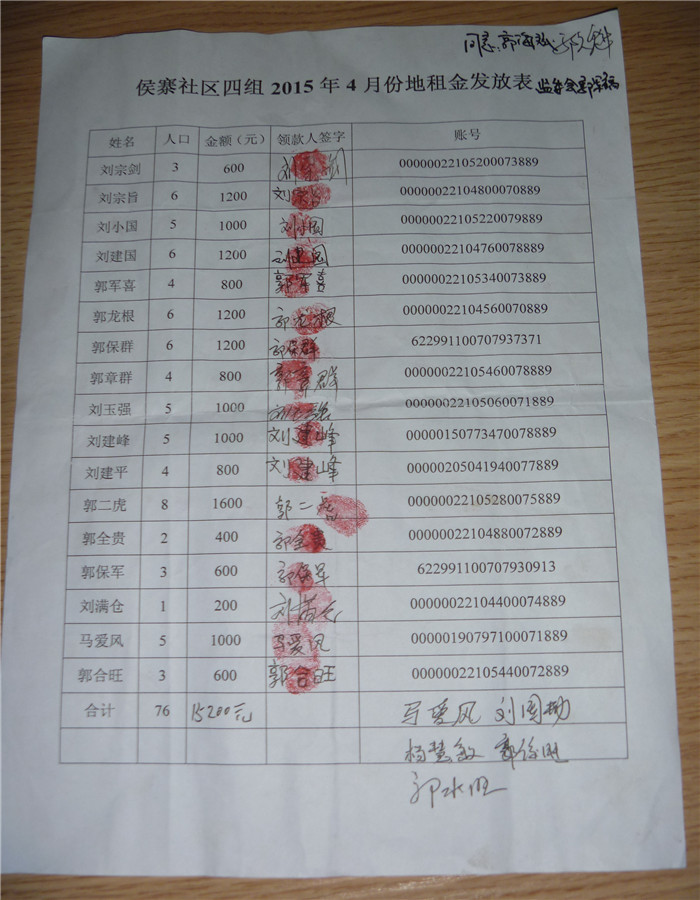 同意 郭海
侯寨社区四组 2015 年 4 月份地租金发放表 监委会
姓名 人口 金额（元） 领款人签字 账号
刘宗剑 3 600 刘宗剑 00000022105200073889
刘宗旨 6 1200 刘宗旨 00000022104800070889
刘小国 5 1000 刘小国 00000022105220079889
刘建国 6 1200 刘建国 00000022104760078889
郭军喜 4 800 郭军喜 00000022105340073889
郭龙根 6 1200 郭龙根 00000022104560070889
郭保群 6 1200 郭保群 622991100707937371
郭章群 4 800 郭章群 00000022105460078889
刘玉强 5 1000 刘玉强 00000022105060071889
刘建峰 5 1000 刘建峰 00000150773470078889
刘建平 4 800 刘建峰 00000205041940077889
郭二虎 8 1600 郭二 00000022105280075889
郭全贵 2 400 郭全贵 00000022104880072889
郭保军 3 600 郭保军 622991100707930913
刘满仓 1 200 刘满仓 00000022104400074889
马爱风 5 1000 马爱风 00000190797100071889
郭合旺 3 600 郭合旺 00000022105440072889
合计 76 15200元 马爱风 刘国
杨慧敏 郭
郭水旺